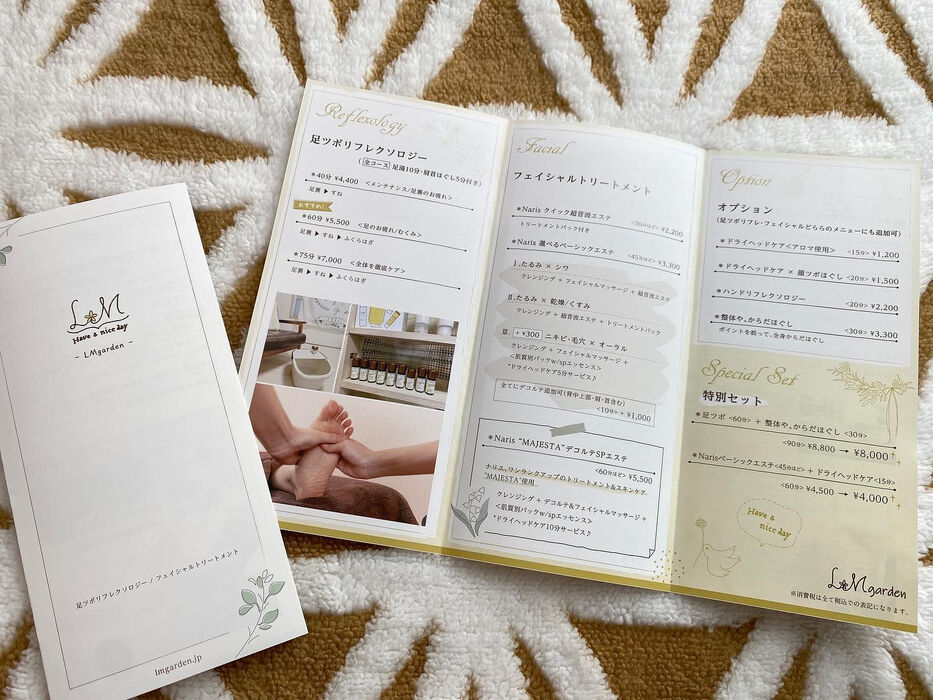 L M
Have a nice day
- LMgarden -
足ツボリフレクソロジー / フェイシャルトリートメント
lmgarden.jp
Reflexology
足ツボリフレクソロジー
(全コース 足湯10分・肩首ほぐし5分付き)
*40分 ¥4,400 <メンテナンス/足裏のお疲れ>
足裏 ▶ すね
おすすめ!
*60分 ¥5,500 <足のお疲れ/むくみ>
足裏 ▶ すね ▶ ふくらはぎ
*75分 ¥7,000 <全体を徹底ケア>
足裏 ▶ すね ▶ ふくらはぎ
Facial
フェイシャルトリートメント
*Naris クイック超音波エステ <30分ほど> ¥2,200
トリートメントパック付き
*Naris 選べるベーシックエステ <45分ほど> ¥3,300
Ⅰ.たるみ × シワ
クレンジング + フェイシャルマッサージ + 超音波エステ
Ⅱ.たるみ × 乾燥/くすみ
クレンジング + 超音波エステ + トリートメントパック
Ⅲ. +¥300 ニキビ・毛穴 × オーラル
クレンジング + フェイシャルマッサージ +
<肌質別パックw/spエッセンス>
*ドライヘッドケア5分サービス♪
全てにデコルテ追加可(背中上部・肩・首含む)
<10分> + ¥1,000
*Naris "MAJESTA"デコルテSPエステ
<60分ほど> ¥5,500
ナリス、ワンランクアップのトリートメント&スキンケア
"MAJESTA"使用
クレンジング + デコルテ&フェイシャルマッサージ +
<肌質別パックw/spエッセンス>
*ドライヘッドケア10分サービス♪
Option
オプション
(足ツボリフレ・フェイシャルどちらのメニューにも追加可)
*ドライヘッドケア<アロマ使用> <15分> ¥1,200
*ドライヘッドケア × 顔ツボほぐし <20分> ¥1,500
*ハンドリフレクソロジー <20分> ¥2,200
*整体や。からだほぐし <30分> ¥3,300
ポイントを絞って、全身からだほぐし
Special Set
特別セット
*足ツボ <60分> + 整体や。からだほぐし <30分>
<90分> ¥8,800 → ¥8,000†
*Narisベーシックエステ<45分ほど> + ドライヘッドケア<15分>
<60分> ¥4,500 → ¥4,000†
Have a
nice day
LMgarden
※消費税は全て税込での表記になります。